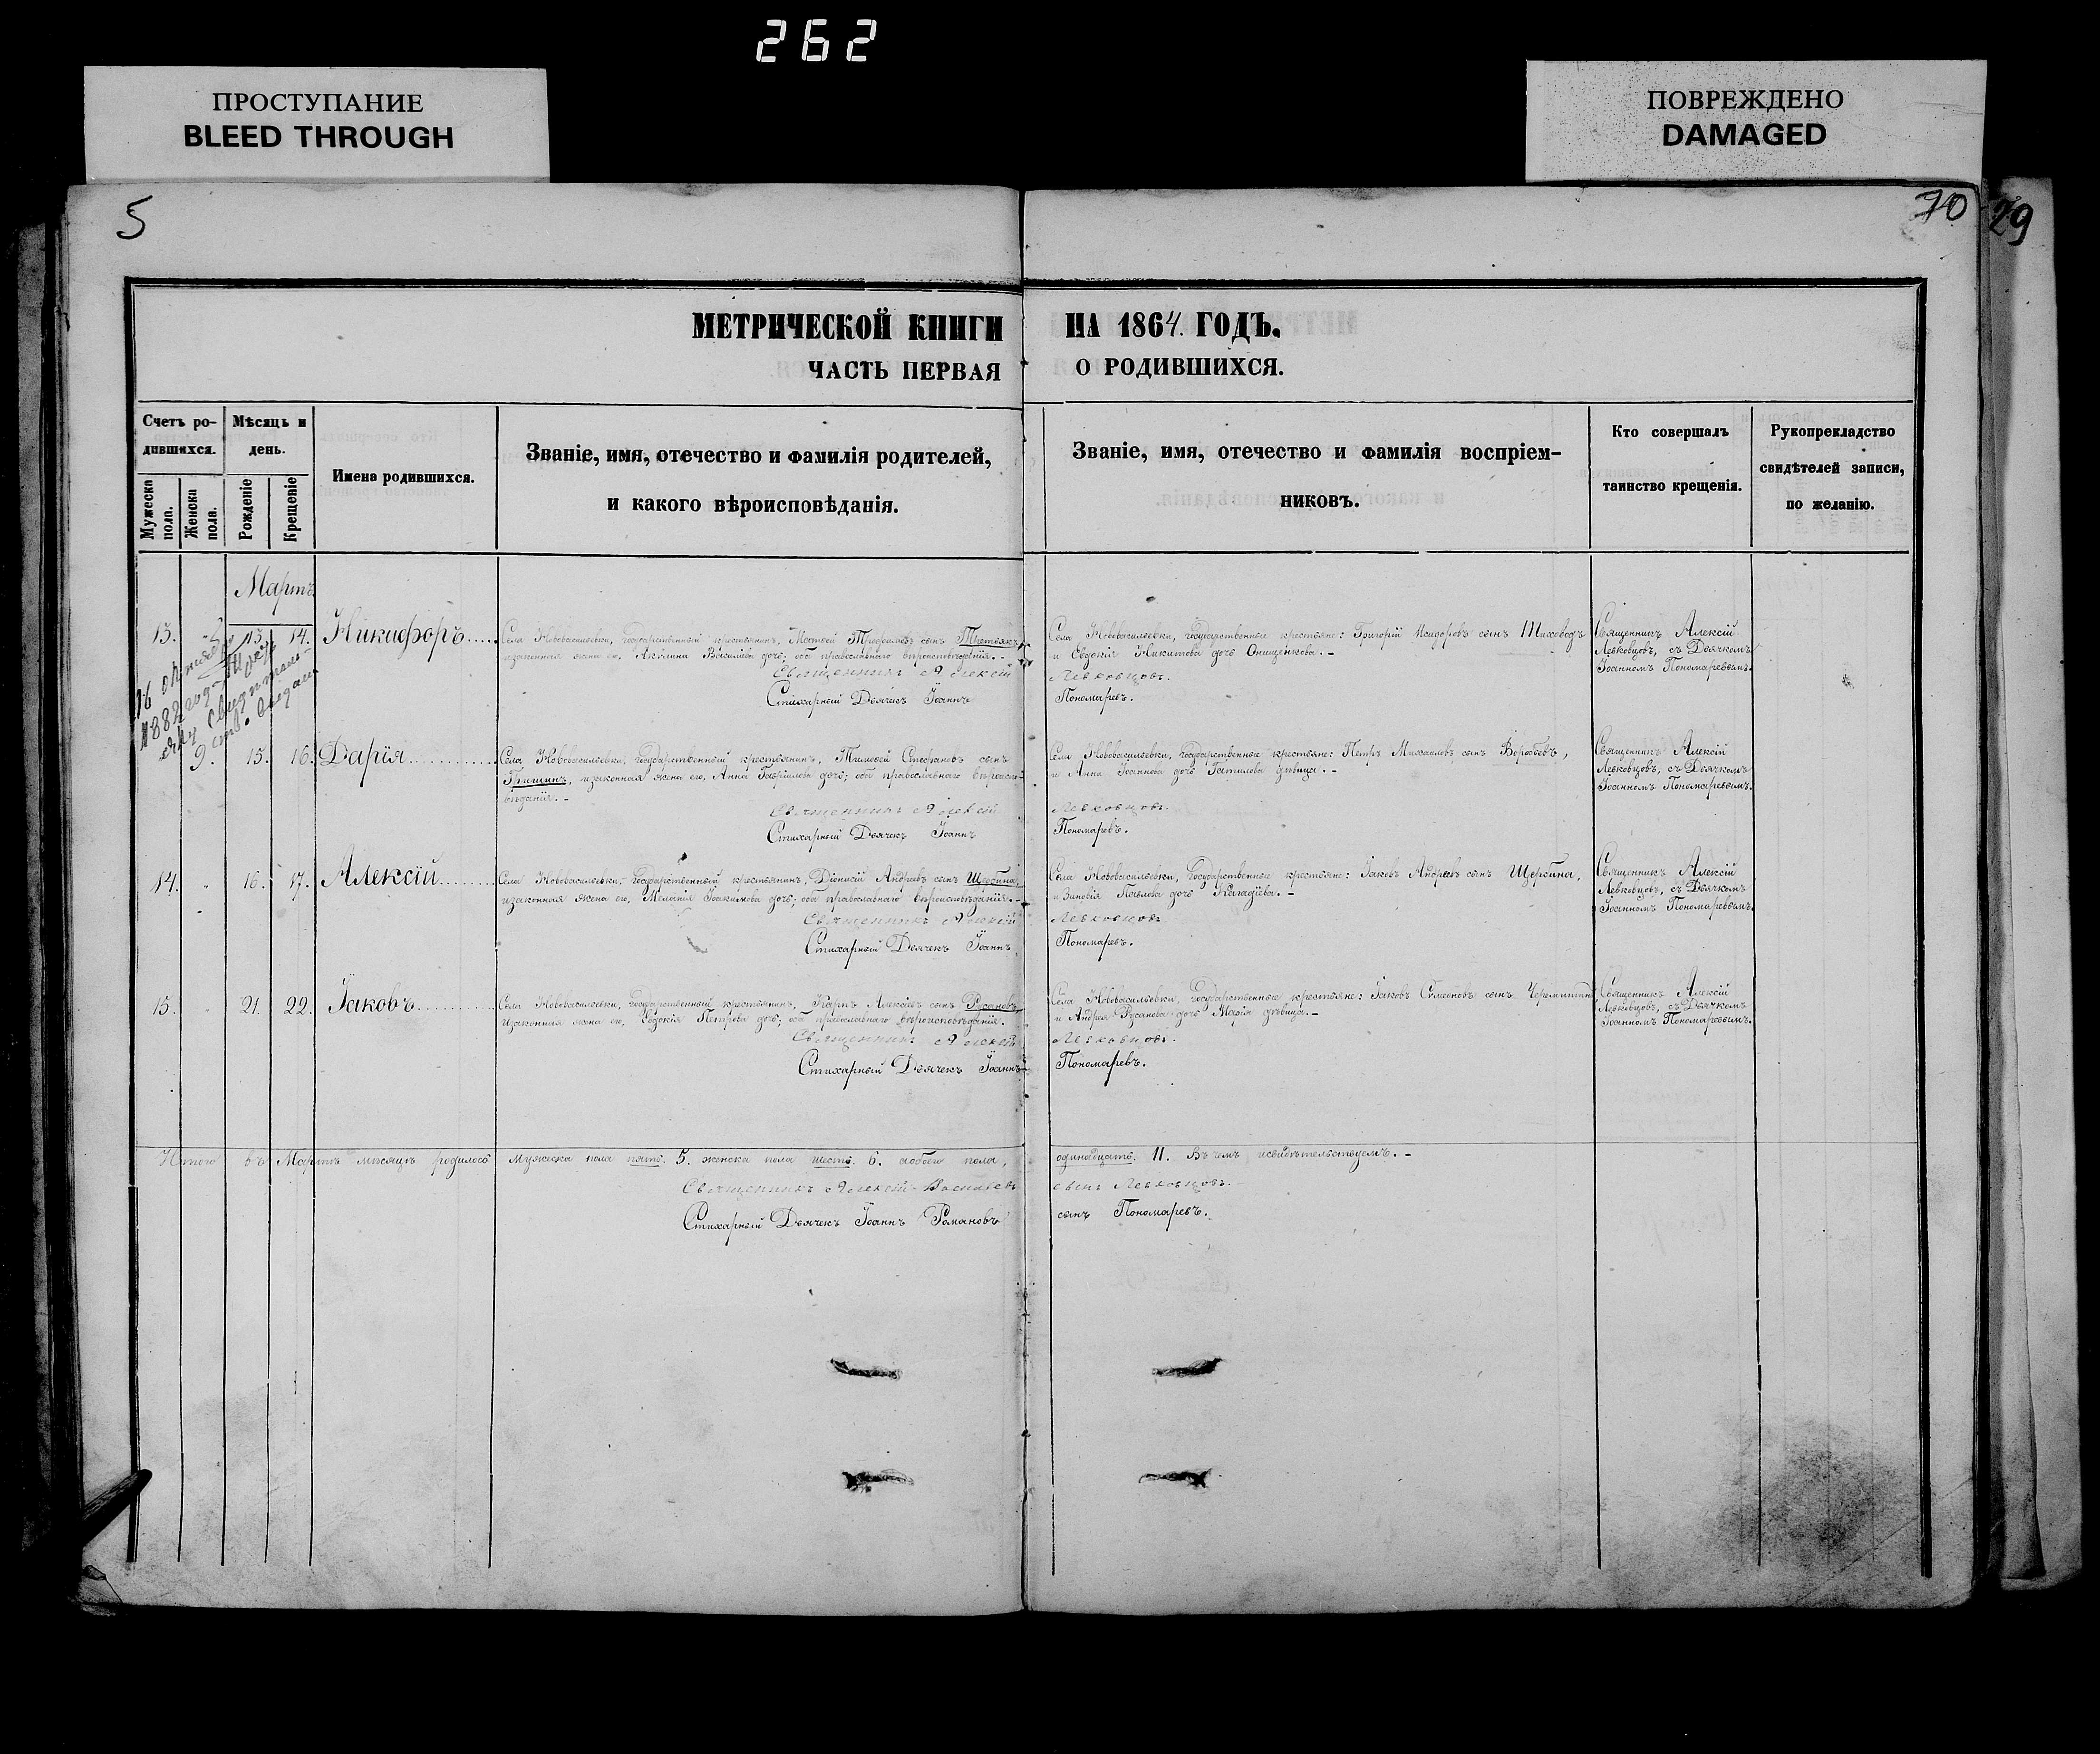 262
ПРОСТУПАНИЕ
BLEED THROUGH
ПОВРЕЖДЕНО
DAMAGED
5
70
29
МЕТРИЧЕСКОЙ КНИГИ НА 1864. ГОДЪ.
ЧАСТЬ ПЕРВАЯ О РОДИВШИХСЯ.
Счетъ ро-
дившихся.
Мужеска
пола.
Женска
пола.
Мѣсяцъ и
день.
Рожденіе
Крещеніе
Имена родившихся.
Званіе, имя, отечество и фамилія родителей,
и какого вѣроисповѣданія.
Званіе, имя, отечество и фамилія воспріем-
никовъ.
Кто совершалъ
таинство крещенія.
Рукоприкладство
свидѣтелей записи,
по желанію.
Мартъ
13. 13. 14. Никифоръ
Села Нововасильевки, государственный крестьянинъ, Матвей сынъ Третьякъ
изаконная жена его, Акилина Василіева дочь; оба православнаго вѣроисповѣданія.-
Священникъ Алексій
Стихарный Дьячекъ Іоаннъ
Села Нововасильевки, государственные крестьяне: Григорій Исидоровъ сынъ Тиховодъ
и Евдокія Никитова дочь Онищенкова.-
Левковцовъ.
Пономаревъ.
Священникъ Алексій
Левковцовъ, съ Дьячкомъ
Іоанномъ Пономаревымъ.
16 октября
1882 год
9. 15. 16. Дарія
Села Нововасильевки, государственный крестьянинъ, Тимофей Стефановъ сынъ
Гришинъ, изаконная жена его, Анна Гавріилова дочь; оба православнаго вѣроиспо-
вѣданія.-
Священникъ Алексій
Стихарный Дьячекъ Іоаннъ
Села Нововасильевки, государственные крестьяне: Петръ Михаиловъ сынъ Воробьевъ,
и Анна Іоаннова дочь дѣвица.-
Левковцовъ.
Пономаревъ.
Священникъ Алексій
Левковцовъ, съ Дьячкомъ
Іоанномъ Пономаревымъ.
14. 16. 17. Алексій
Села Нововасильевки, государственный крестьянинъ, Діонисій Андреевъ сынъ Щербина,
изаконная жена его, Меланія Іоакимова дочь; оба православнаго вѣроисповѣданія.-
Священникъ Алексій
Стихарный Дьячекъ Іоаннъ
Села Нововасильевки, государственные крестьяне: Іаковъ Андреевъ сынъ Щербина,
и Зиновія Павлова дочь
Левковцовъ
Пономаревъ.
Священникъ Алексій
Левковцовъ, съ Дьячкомъ
Іоанномъ Пономаревымъ.
15. 21. 22. Іаковъ
Села Нововасильевки, государственный крестьянинъ, Карпъ Алексіевъ сынъ Русановъ,
изаконная жена его, Евдокія Петрова дочь; оба православнаго вѣроисповѣданія.
Священникъ Алексій
Стихарный Дьячекъ Іоаннъ
Села Нововасильевки, государственные крестьяне: Іаковъ Симеоновъ сынъ
и Андрея Русанова дочь Марія дѣвица.-
Левковцовъ.
Пономаревъ.
Священникъ Алексій
Левковцовъ, съ Дьячкомъ
Іоанномъ Пономаревымъ.
Итого въ Мартѣ мѣсяцѣ родилось мужеска пола пять. 5. женска пола шесть. 6. обоего пола, одинадцать. 11. Въ чемъ исвидѣтельствуемъ.-
Священникъ Алексій Василіевъ сынъ Левковцовъ.
Стихарный Дьячекъ Іоаннъ Романовъ сынъ Пономаревъ.